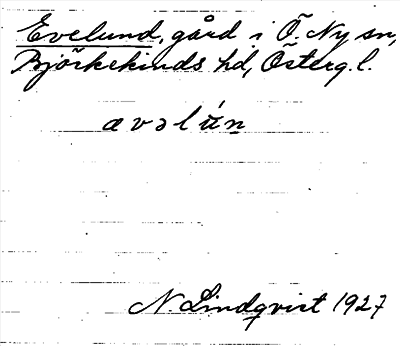 Evelund, gård i Ö. Ny sn,
Björkekinds hd, Österg.l.
avəlún
N Lindqvist 1927